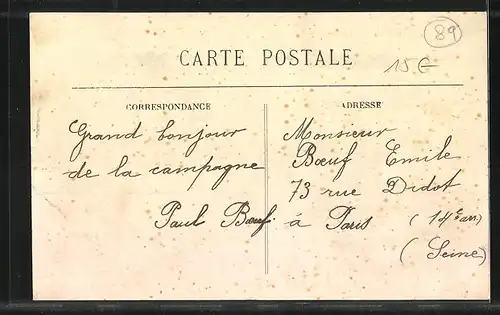 89
CARTE POSTALE
15 €
CORRESPONDANCE
Grand bonjour
de la campagne
Paul Bœuf
ADRESSE
Monsieur
Bœuf Emile
73 rue Didot
à Paris (14e arr)
(Seine)